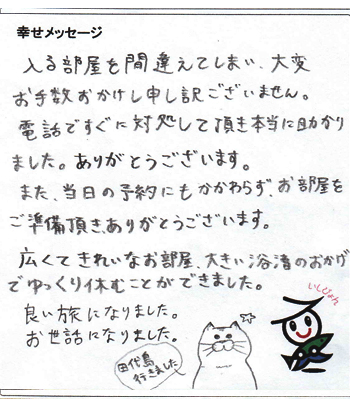 幸せメッセージ
入る部屋を間違えてしまい、大変
お手数おかけし申し訳ございません。
電話ですぐに対処して頂き本当に助かり
ました。ありがとうございます。
また、当日の予約にもかかわらず、お部屋を
ご準備頂き、ありがとうございます。
広くてきれいなお部屋、大きい浴漕のおかげ
でゆっくり休むことができました。
良い旅になりました。
お世話になりました。
いしぴょん
田代島
行きました